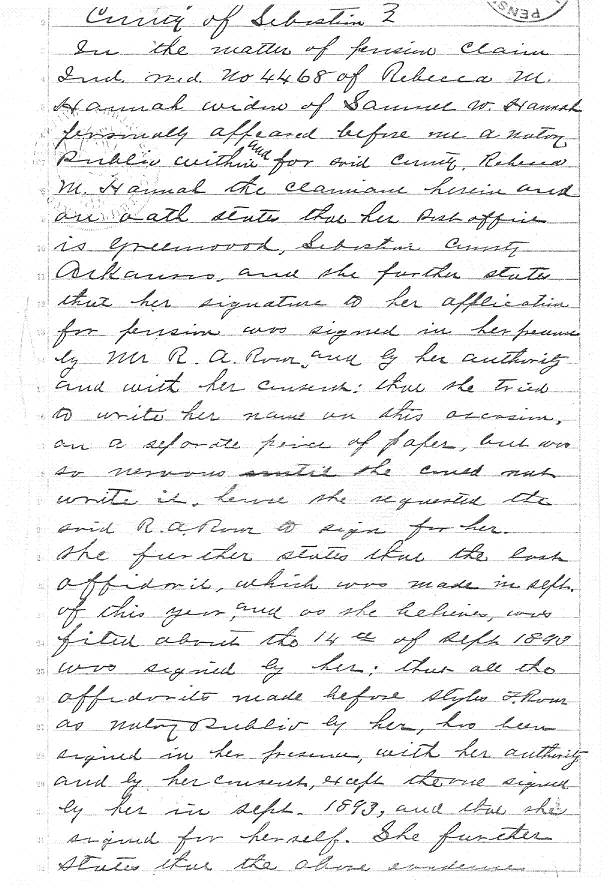 County of Sebastian }
PENS
In the matter of pension claim
Ind. wid. No 4468 of Rebecca M.
Hannah widow of Samuel W. Hannah
personally appeared before me a notary
Public within and for said County, Rebecca
M. Hannah the claimant herein and
on oath states that her Post office
is Greenwood, Sebastian County
Arkansas, and she further states
that her signature to her application
for pension was signed in her presence
by Mr R. A. Rowe, and by her authority
and with her consent: that she tried
to write her name on this occasion,
on a seporate peice of paper, but was
so nervous until she could not
write it, hence she requested the
said R. A. Rowe to sign for her.
She further states that the last
affidavit, which was made in Sept.
of this year, and as she believes, was
filed about the 14th of Sept 1893
was signed by her: that all the
affidavits made before Styles T. Rowe
as notary Public by her, has been
signed in her presence, with her authority
and by her consent, except the one signed
by her in Sept. 1893, and that she
signed for herself. She further
states that the above evidence